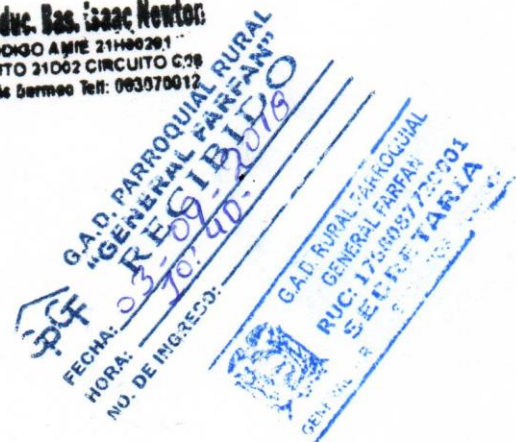 Educ. Bas. Isaac Newton
CODIGO AMIE 21H00291
CIRCUITO
Bermeo Telf: 093070012
G.A.D. PARROQUIAL RURAL
"GENERAL FARFAN"
RECIBIDO
FECHA: 03-09-2018
HORA: 10:40-
NO. DE INGRESO:
G.A.D. RURAL PARROQUIAL
GENERAL FARFAN
RUC:
SECRETARIA